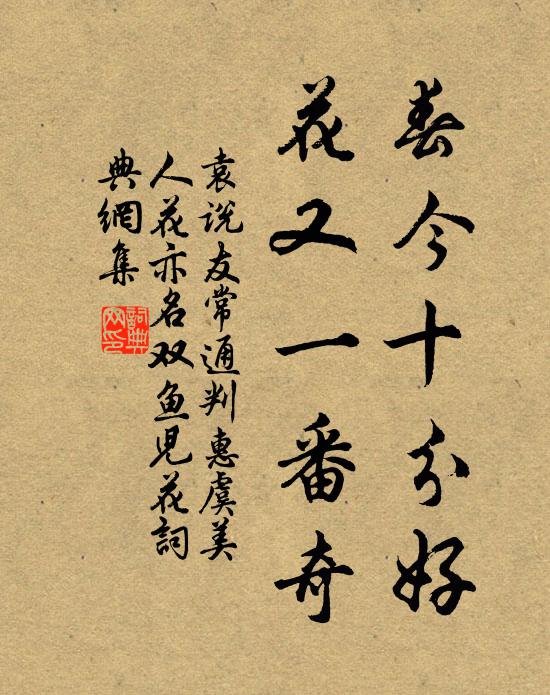 春今十分好
花又一番奇
袁说友常通判惠虞美
人花亦名双鱼児花詞
典網集
詞典網印